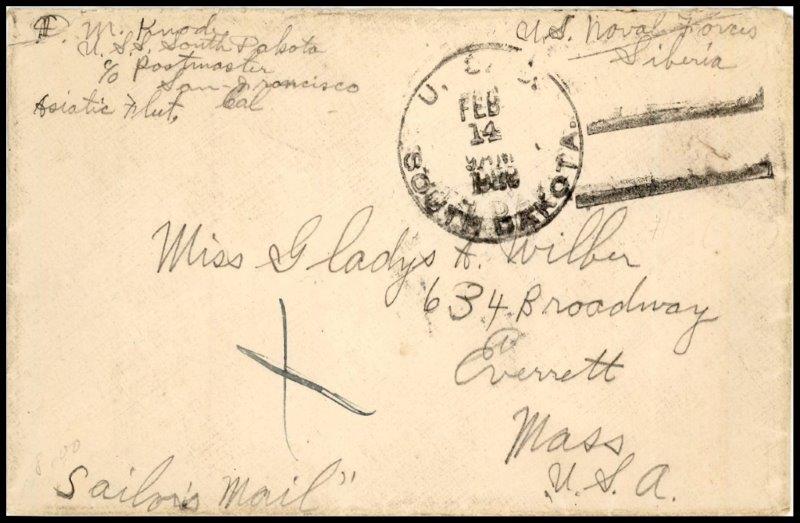 M. Knod
U.S.S. South Dakota
c/o Postmaster
San-Francisco
Cal
Asiatic Fleet,
U.S. Naval Forces
Siberia
U. S. S.
FEB
14
SOUTH DAKOTA.
Miss Gladys A. Wilber
634 Broadway
Everett
Mass
U.S.A.
Sailor's Mail"